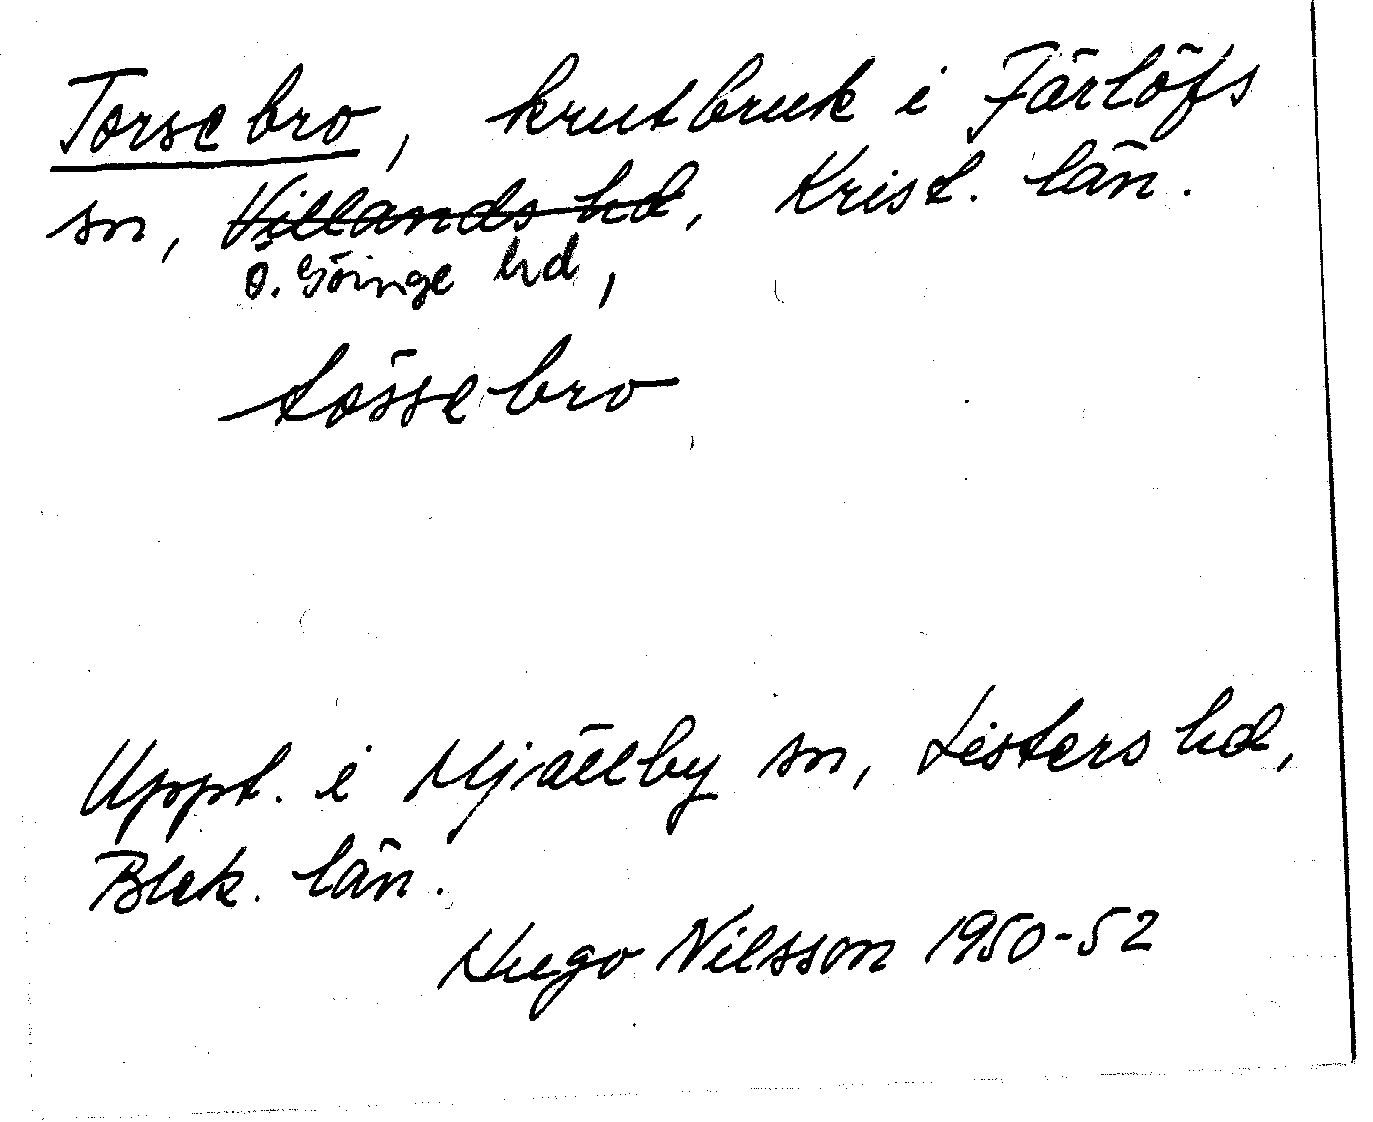 Torsebro, krutbruk i Färlöfs
sn, ~~Villands hd~~, Krist. län.
Ö. Göinge hd,
tössebro
Uppt. i Mjällby sn, Listers hd,
Blek. län.
Hugo Nilsson 1950-52